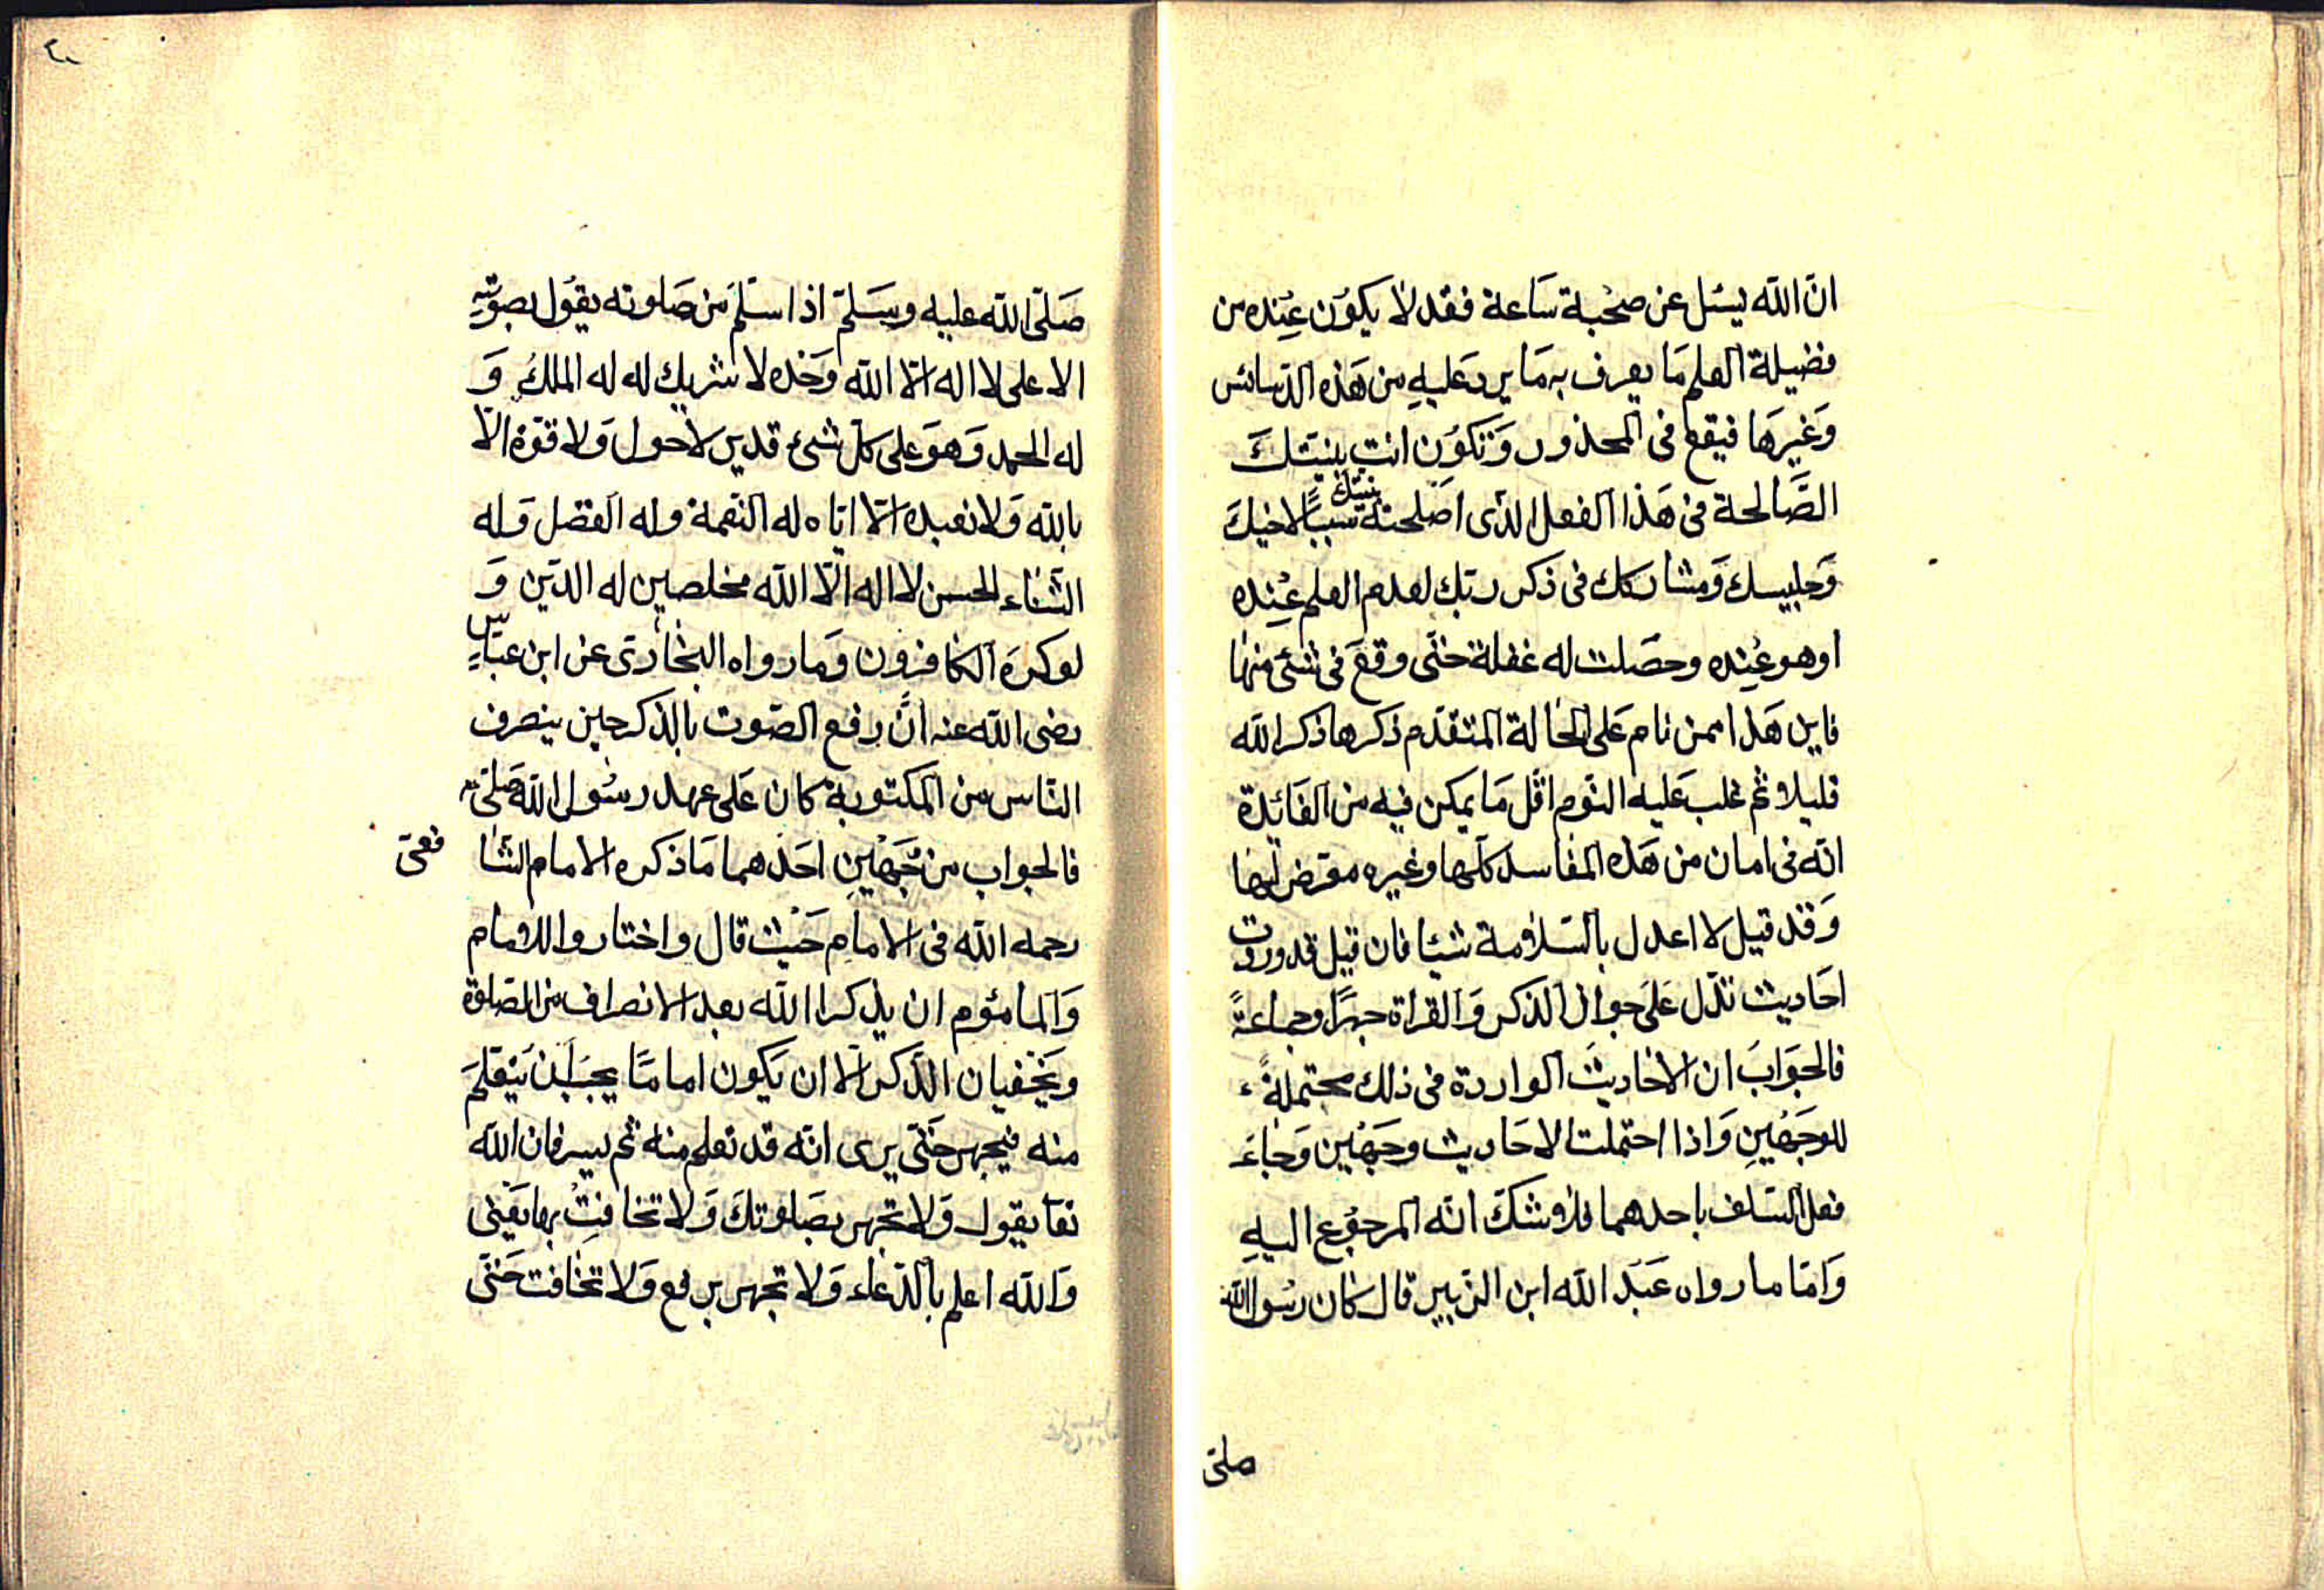 انّ الله يسئل عن صحُبة سَاعة فقد لا يكوُن عِنده من
فضيلة العلم مَا يعرف به مَا يرد عَليهِ من هَذه الدّسائس
وَغيرَها فيقع فى المحذور وَتكوُن انت بنيتكَ
الصَّالحة فى هَذا الفعل الذى اصلحته بنيتك سَببًا لاخيكَ
وَجليسك وَمشاركك فى ذكر ربّك لعدم العلم عنِده
او هو عنِده وحصَلت له غفلة حتّى وقعَ فى شئ منها
فاين هَذا ممن نام عَلى الحالة المتقدّم ذكرها ذكر الله
قليلا ثم غلب عَليه النوّم اقل مَا يمكن فيه من الفَائدة
انّه فى امان من هَذه المفاسد كلّها وغيره معرّض لها
وَقد قيل لا اعدل بالسّلامة شيئا فان قيل قد وردت
احَاديث تدّل عَلى جواز الذكر وَالقراة جهرًا وجماعةً
فالجوَابَ ان الاحاديثَ الواردة فى ذلك محتملةً
للوجَهينِ وَاذا احتملت الاحَاديث وجهَين وَجاءَ
فعل السّلف باحدهما فلا شكّ انّه المرجوُع اليهِ
وَامّا ما رواه عَبد الله ابن الزّبير قال كان رسُول الله
صلى
٢٠
صَلّى الله عليه وسَلّم اذا سلّمَ من صَلوته يقوُل بصوته
الاعلى لا اله الّا الله وَحده لا شريك له له الملكُ وَ
له الحمد وَهوَ على كلّ شئ قدير لاحول وَلا قوّة الّا
بالله وَلا نعبد الّا ايّاه له النّعمة وله الفضل وَله
الثّناء الحسن لا اله الّا الله مخلصين له الدّين وَ
لو كرَه الكافرون وَما رواه البخارى عن ابن عبّاسٍ
رضى الله عنه انَّ رفع الصّوت بالذكر حين ينصرف
النّاس من المكتوبة كان عَلى عهد رسُول الله صَلّى
فالجواب من وجَهَين احَدهما مَا ذكره الامام الشا فعىّ
رحمه الله فى الامام حَيْث قال واختار للامام
وَالمامُوم ان يذكرا الله بعد الانصراف من الصّلوة
ويَخفيان الذّكر الّا ان يَكون امامًا يجبُ اَن يَتعلّمَ
منه فيجهر حَتّى يرى انّه قد تعلم منه ثم يسر فان الله
تعا يقول وَلا تجهر بصَلوتكَ وَلا تخافِتْ بها يَعنى
وَالله اعلم بالدّعاء وَلا تجهر برفع وَلا تخافت حَتّى